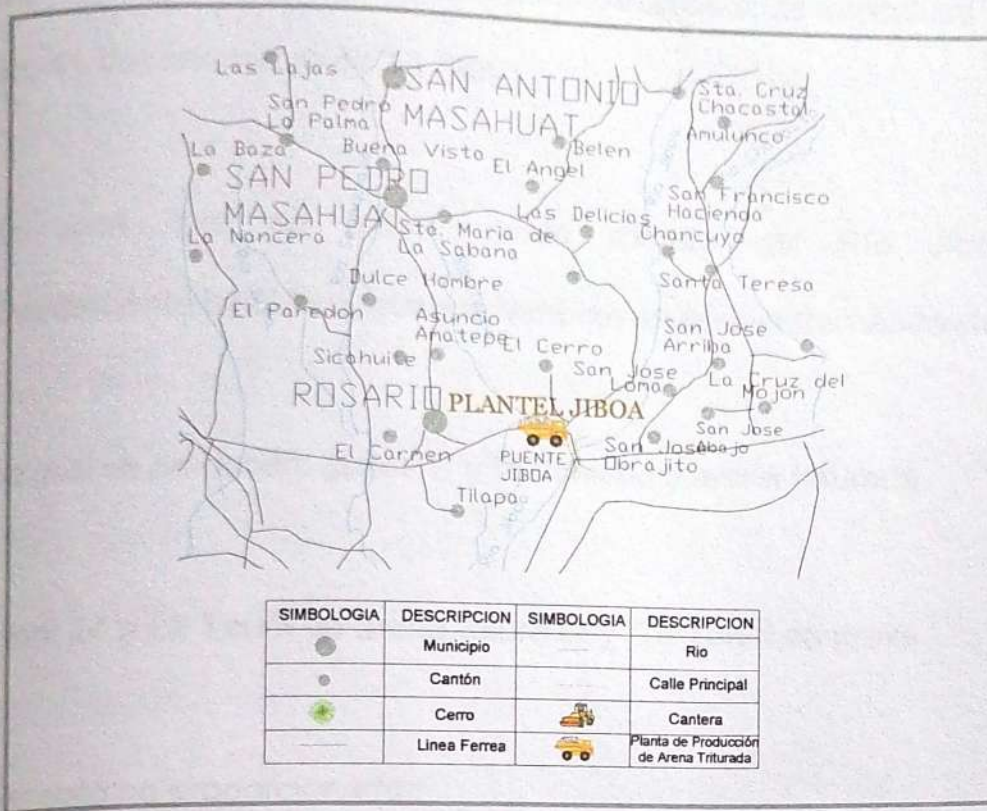 Las Lajas
SAN ANTONIO
MASAHUAT
Sta. Cruz
Chacastal
San Pedro
La Palma
Amulunco
La Baza
Buena Visto
Belen
El Angel
SAN PEDRO
MASAHUAT
San Francisco
Hacienda
La Nancera
Sta. Maria de
La Sabana
Las Delicias
Chancuyo
Dulce Hombre
Santa Teresa
El Paredon
Asuncio
Anatepe
El Cerro
San Jose
Arriba
Sicahuite
San Jose
Loma
La Cruz del
Mojon
ROSARIO
PLANTEL JIBOA
San Jose
Abajo
El Carmen
PUENTE
JIBOA
San Jose
Obrajito
Tilapa
SIMBOLOGIA DESCRIPCION SIMBOLOGIA DESCRIPCION
Municipio Rio
Cantón Calle Principal
Cerro Cantera
Linea Ferrea Planta de Producción
de Arena Triturada